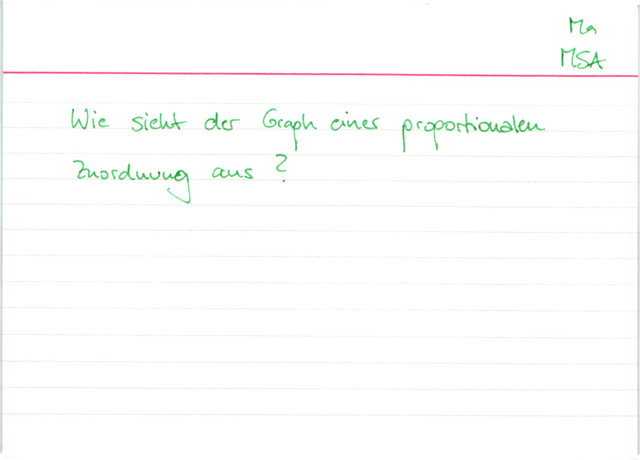 Ma
MSA
Wie sieht der Graph einer proportionalen
Zuordnung aus?